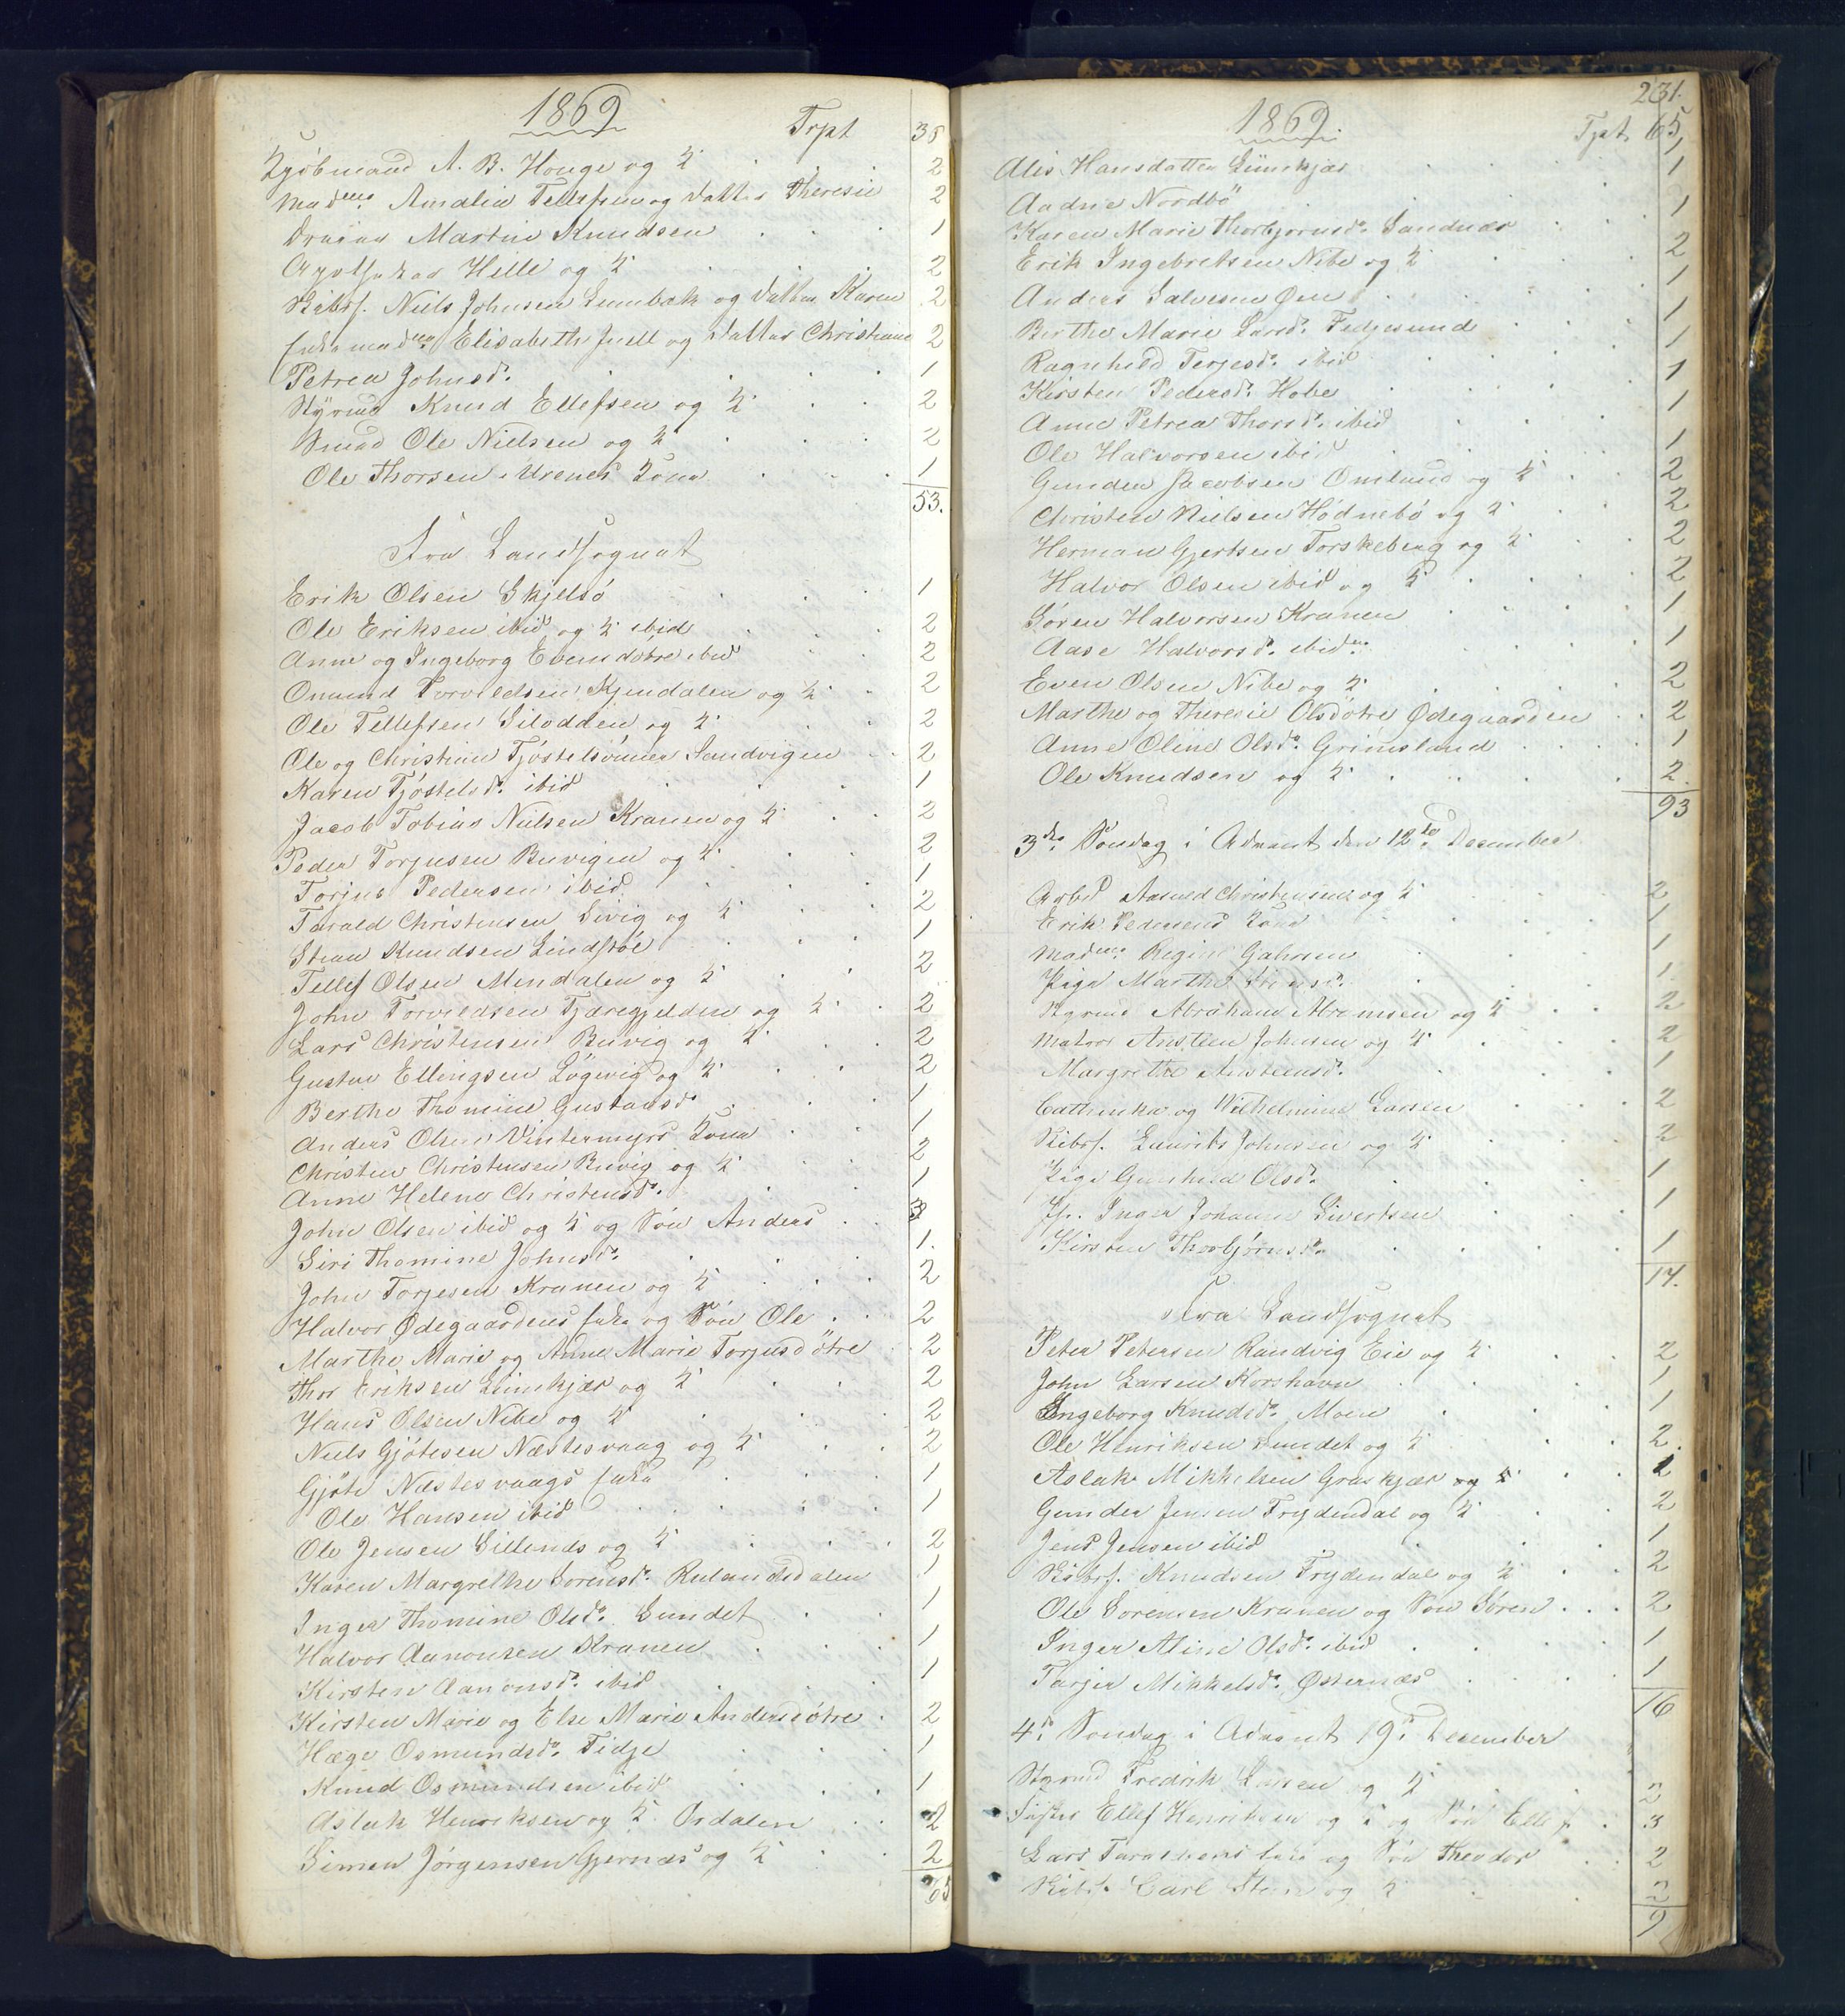 1869
Trpt 38
Kjöbmand A. B. Houge og K. 2
Madme Amalia Tellefsen og Datter Theresie 2
Martin Knudsen 1
Apotheker Hille og K. 2
Skibsf. Niels Johnsen Lumbæk og Datter Karen 2
Enkemadme Elisabeth Juell og Datter Christiane 2
Petrea Johnsd. 1
Styrmd Knud Ellefsen og K. 2
Smed Ole Nielsen og K. 2
Ole Thorsen Urenes Kone 1
53.
Fra Landsognet
Erik Olsen Skjelsö 1
Ole Eriksen ibid og K. ibid 2
Anne og Ingeborg Evensdøtre ibid 2
Omund Torvildsen Kjendalen og K. 2
Ole Tellefsen Silodden og K. 2
Ole og Christian Tjöstelsönner Sandvigen 2
Karen Tjöstelsd. ibid 1
Jacob Tobias Nielsen Kranen og K. 2
Peder Torjusen Buvigen og K. 2
Torjus Pedersen ibid 1
Tarald Christensen Sivig og K. 2
Stian Knudsen Lindstöl 1
Tellef Olsen Mendalen og K. 2
John Torvildsen Tjæregjelden og K. 2
Lars Christensen Buvig og K. 2
Gustav Ellingsen Lögevig og K. 2
Berthe Thomine Gustavsd. 1
Anders Olsen Vintermyrs Kone 1
Christen Christensen Buvig og K. 2
Anne Helene Christensd. 1
John Olsen ibid og K. og Sön Anders 3
Siri Thomine Johnsd. 1.
John Torjesen Kranen og K. 2
Halvor Ødegaardens Enke og Sön Ole 2
Marthe Marie og Anne Marie Torjusdötre 2
Thor Eriksen Lunekjær og K. 2
Hans Olsen Nibe og K. 2
Niels Gjötesen Næstesvaag og K. 2
Gjöte Næstesvaags Enke 1
Ole Hansen ibid 1
Ole Jensen Sillends og K. 2
Karen Margrethe Sörensd. Rulandsdalen 1
Inger Thomine Olsd. Sundet 1
Halvor Aanonsen Kranen 1
Kirsten Aanonsd. ibid 1
Kirsten Marie og Else Marie Andersdötre 2
Hæge Osmundsd. Fidje 1
Knud Osmundsen ibid 1
Aslak Henriksen og K. Ordalen 2
Simon Jörgensen Gjernæs og K. 2
65
231.
1869.
Tpt. 65,
Alis Hansdatter Lunekjær 1
Aadne Nordbö 1
Karen Marie Thorbjörnsd. Sandnæs 1
Erik Ingebretsen Nibe og K. 2
Anders Salvesen Øen 1
Berthe Marie Larsd. Fedjesund 1
Ragnhild Terjesd. ibid 1
Kirsten Pedersd. Hobe 1
Anne Petrea Thorsd. ibid 1
Ole Halvorsen ibid 1
Gunder Jacobsen Omlund og K. 2
Christen Nielsen Hödnebö og K. 2
Herman Gjertsen Torskeberg og K. 2
Halvor Olsen ibid og K. 2
Sören Halvorsen Kranen 1
Aase Halvorsd. ibid 1
Even Olsen Nibe og K. 2
Marthe og Theresie Olsdötre Ødegaarden 2
Anne Oline Olsd. Grimsland 1
Ole Knudsen og K. 2.
93
3die Söndag i Advent den 12te December
Arbd Asmund Christensen og K. 2
Erik Pedersens Kone 1
Madme Regine Gahrsen 1
Pige Marthe 1
Styrmd Abraham Abramsen og K. 2
Matros Austeen Johnsen og K. 2
Margrethe Austeensd. 1
Cathinka og Wilhelmine Larsen 2
Skibsf. Lauritz Johnsen og K. 2
Pige Gunhild Olsd. 1
Jfr. Inger Johanne Sivertsen 1
Kirsten Thorbjörnsd. 1
17.
Fra Landsognet
Peter Petersen Randvig Eie og K. 2
John Larsen Korshavn 1
Ingeborg Knudsd. Moen 1
Ole Henriksen Sundet og K. 2.
Aslak Mikkelsen Graskjær og K. 1
Gunder Jensen Frydendal og K. 2
Jens Jensen ibid 1
Skibsf. Knudsen Frydendal og K. 2
Ole Sörensen Kranen og Sön Sören 2
Inger Aline Olsd. ibid 1
Tarjer Mikkelsd. Østernæs 1
16
4de Söndag i Advent 19de December
Styrmd Fredrik Larsen og K. 2
Ellef Henriksen og K. og Sön Ellef 3
Lars Taraldsens Enke og Sön Theodor 2
Skibsf. Carl Steen og K. 2
9